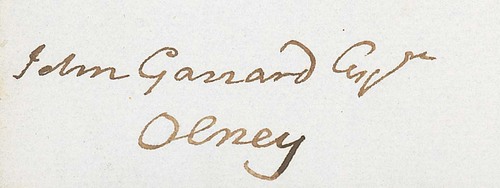 John Garrard Esqr
Olney